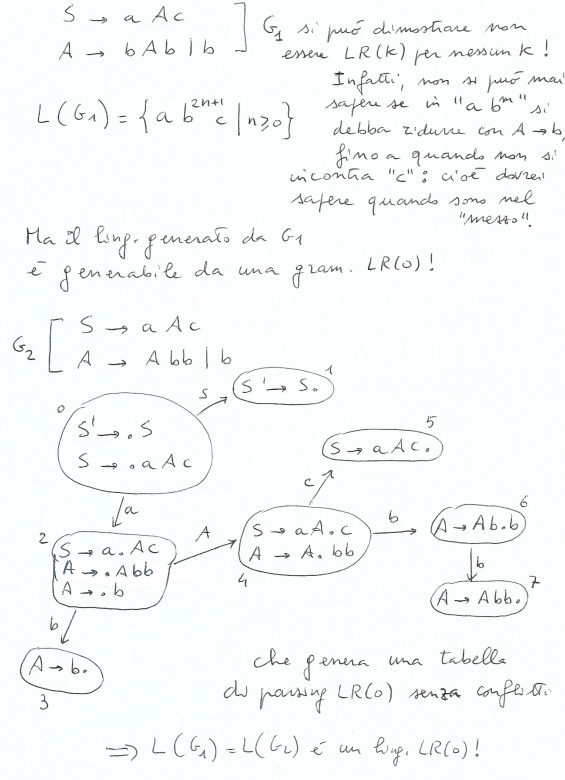 S → a A c
A → b A b | b
G₁ si può dimostrare non
essere LR(k) per nessun k !
Infatti, non si può mai
sapere se in "a bᵐ" si
debba ridurre con A → b,
fino a quando non si
incontra "c" : cioè dovrei
sapere quando sono nel
"mezzo".
L(G₁) = { a b²ⁿ⁺¹ c | n ≥ 0 }
Ma il ling. generato da G₁
è generabile da una gram. LR(0) !
G₂
S → a A c
A → A b b | b
0
S' → . S
S → . a A c
S
1
S' → S .
a
2
S → a . A c
A → . A b b
A → . b
A
4
S → a A . c
A → A . b b
c
5
S → a A c .
b
6
A → A b . b
b
7
A → A b b .
b
A → b .
3
che genera una tabella
di parsing LR(0) senza conflitti
⟹ L(G₁) = L(G₂) è un ling. LR(0) !